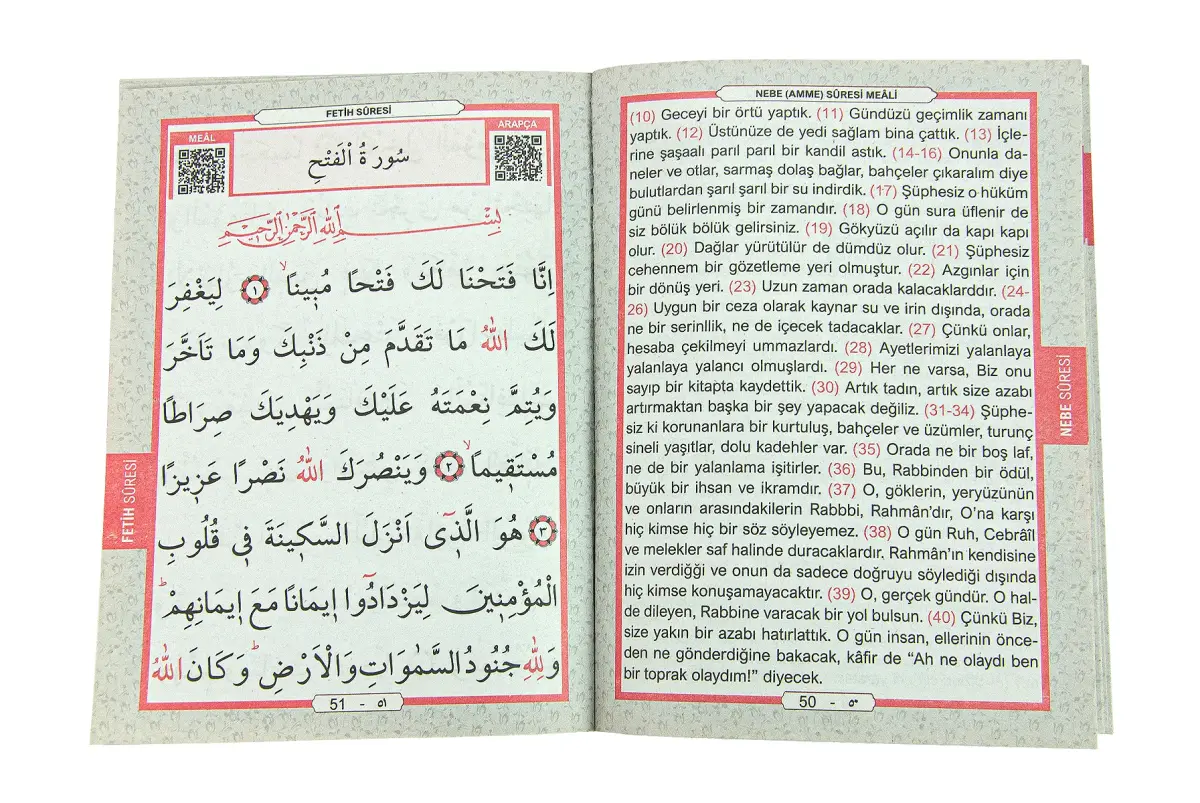 NEBE (AMME) SÛRESİ MEÂLİ
(10) Geceyi bir örtü yaptık. (11) Gündüzü geçimlik zamanı
yaptık. (12) Üstünüze de yedi sağlam bina çattık. (13) İçle-
rine şaşaalı parıl parıl bir kandil astık. (14-16) Onunla da-
neler ve otlar, sarmaş dolaş bağlar, bahçeler çıkaralım diye
bulutlardan şarıl şarıl bir su indirdik. (17) Şüphesiz o hüküm
günü belirlenmiş bir zamandır. (18) O gün sura üflenir de
siz bölük bölük gelirsiniz. (19) Gökyüzü açılır da kapı kapı
olur. (20) Dağlar yürütülür de dümdüz olur. (21) Şüphesiz
cehennem bir gözetleme yeri olmuştur. (22) Azgınlar için
bir dönüş yeri. (23) Uzun zaman orada kalacaklarddır. (24-
26) Uygun bir ceza olarak kaynar su ve irin dışında, orada
ne bir serinllik, ne de içecek tadacaklar. (27) Çünkü onlar,
hesaba çekilmeyi ummazlardı. (28) Ayetlerimizi yalanlaya
yalanlaya yalancı olmuşlardı. (29) Her ne varsa, Biz onu
sayıp bir kitapta kaydettik. (30) Artık tadın, artık size azabı
artırmaktan başka bir şey yapacak değiliz. (31-34) Şüphe-
siz ki korunanlara bir kurtuluş, bahçeler ve üzümler, turunç
sineli yaşıtlar, dolu kadehler var. (35) Orada ne bir boş laf,
ne de bir yalanlama işitirler. (36) Bu, Rabbinden bir ödül,
büyük bir ihsan ve ikramdır. (37) O, göklerin, yeryüzünün
ve onların arasındakilerin Rabbbi, Rahmân’dır, O’na karşı
hiç kimse hiç bir söz söyleyemez. (38) O gün Ruh, Cebrâîl
ve melekler saf halinde duracaklardır. Rahmân’ın kendisine
izin verdiğği ve onun da sadece doğruyu söylediği dışında
hiç kimse konuşamayacaktır. (39) O, gerçek gündür. O hal-
de dileyen, Rabbine varacak bir yol bulsun. (40) Çünkü Biz,
size yakın bir azabı hatırlattık. O gün insan, ellerinin önce-
den ne gönderdiğine bakacak, kâfir de “Ah ne olaydı ben
bir toprak olaydım!” diyecek.
NEBE SÛRESİ
50 - ٥٠
FETİH SÛRESİ
MEÂL
ARAPÇA
سُورَةُ الْفَتْحِ
بِسْمِ اللّٰهِ الرَّحْمٰنِ الرَّحٖيمِ
اِنَّا فَتَحْنَا لَكَ فَتْحًا مُبٖينًاۙ ﴿١﴾ لِيَغْفِرَ
لَكَ اللّٰهُ مَا تَقَدَّمَ مِنْ ذَنْبِكَ وَمَا تَاَخَّرَ
وَيُتِمَّ نِعْمَتَهُ عَلَيْكَ وَيَهْدِيَكَ صِرَاطًا
مُسْتَقٖيمًاۙ ﴿٢﴾ وَيَنْصُرَكَ اللّٰهُ نَصْرًا عَزٖيزًا
﴿٣﴾ هُوَ الَّذٖٓى اَنْزَلَ السَّكٖينَةَ فٖى قُلُوبِ
الْمُؤْمِنٖينَ لِيَزْدَادُٓوا اٖيمَانًا مَعَ اٖيمَانِهِمْؕ
وَلِلّٰهِ جُنُودُ السَّمٰوَاتِ وَالْاَرْضِؕ وَكَانَ اللّٰهُ
FETİH SÛRESİ
51 - ٥١